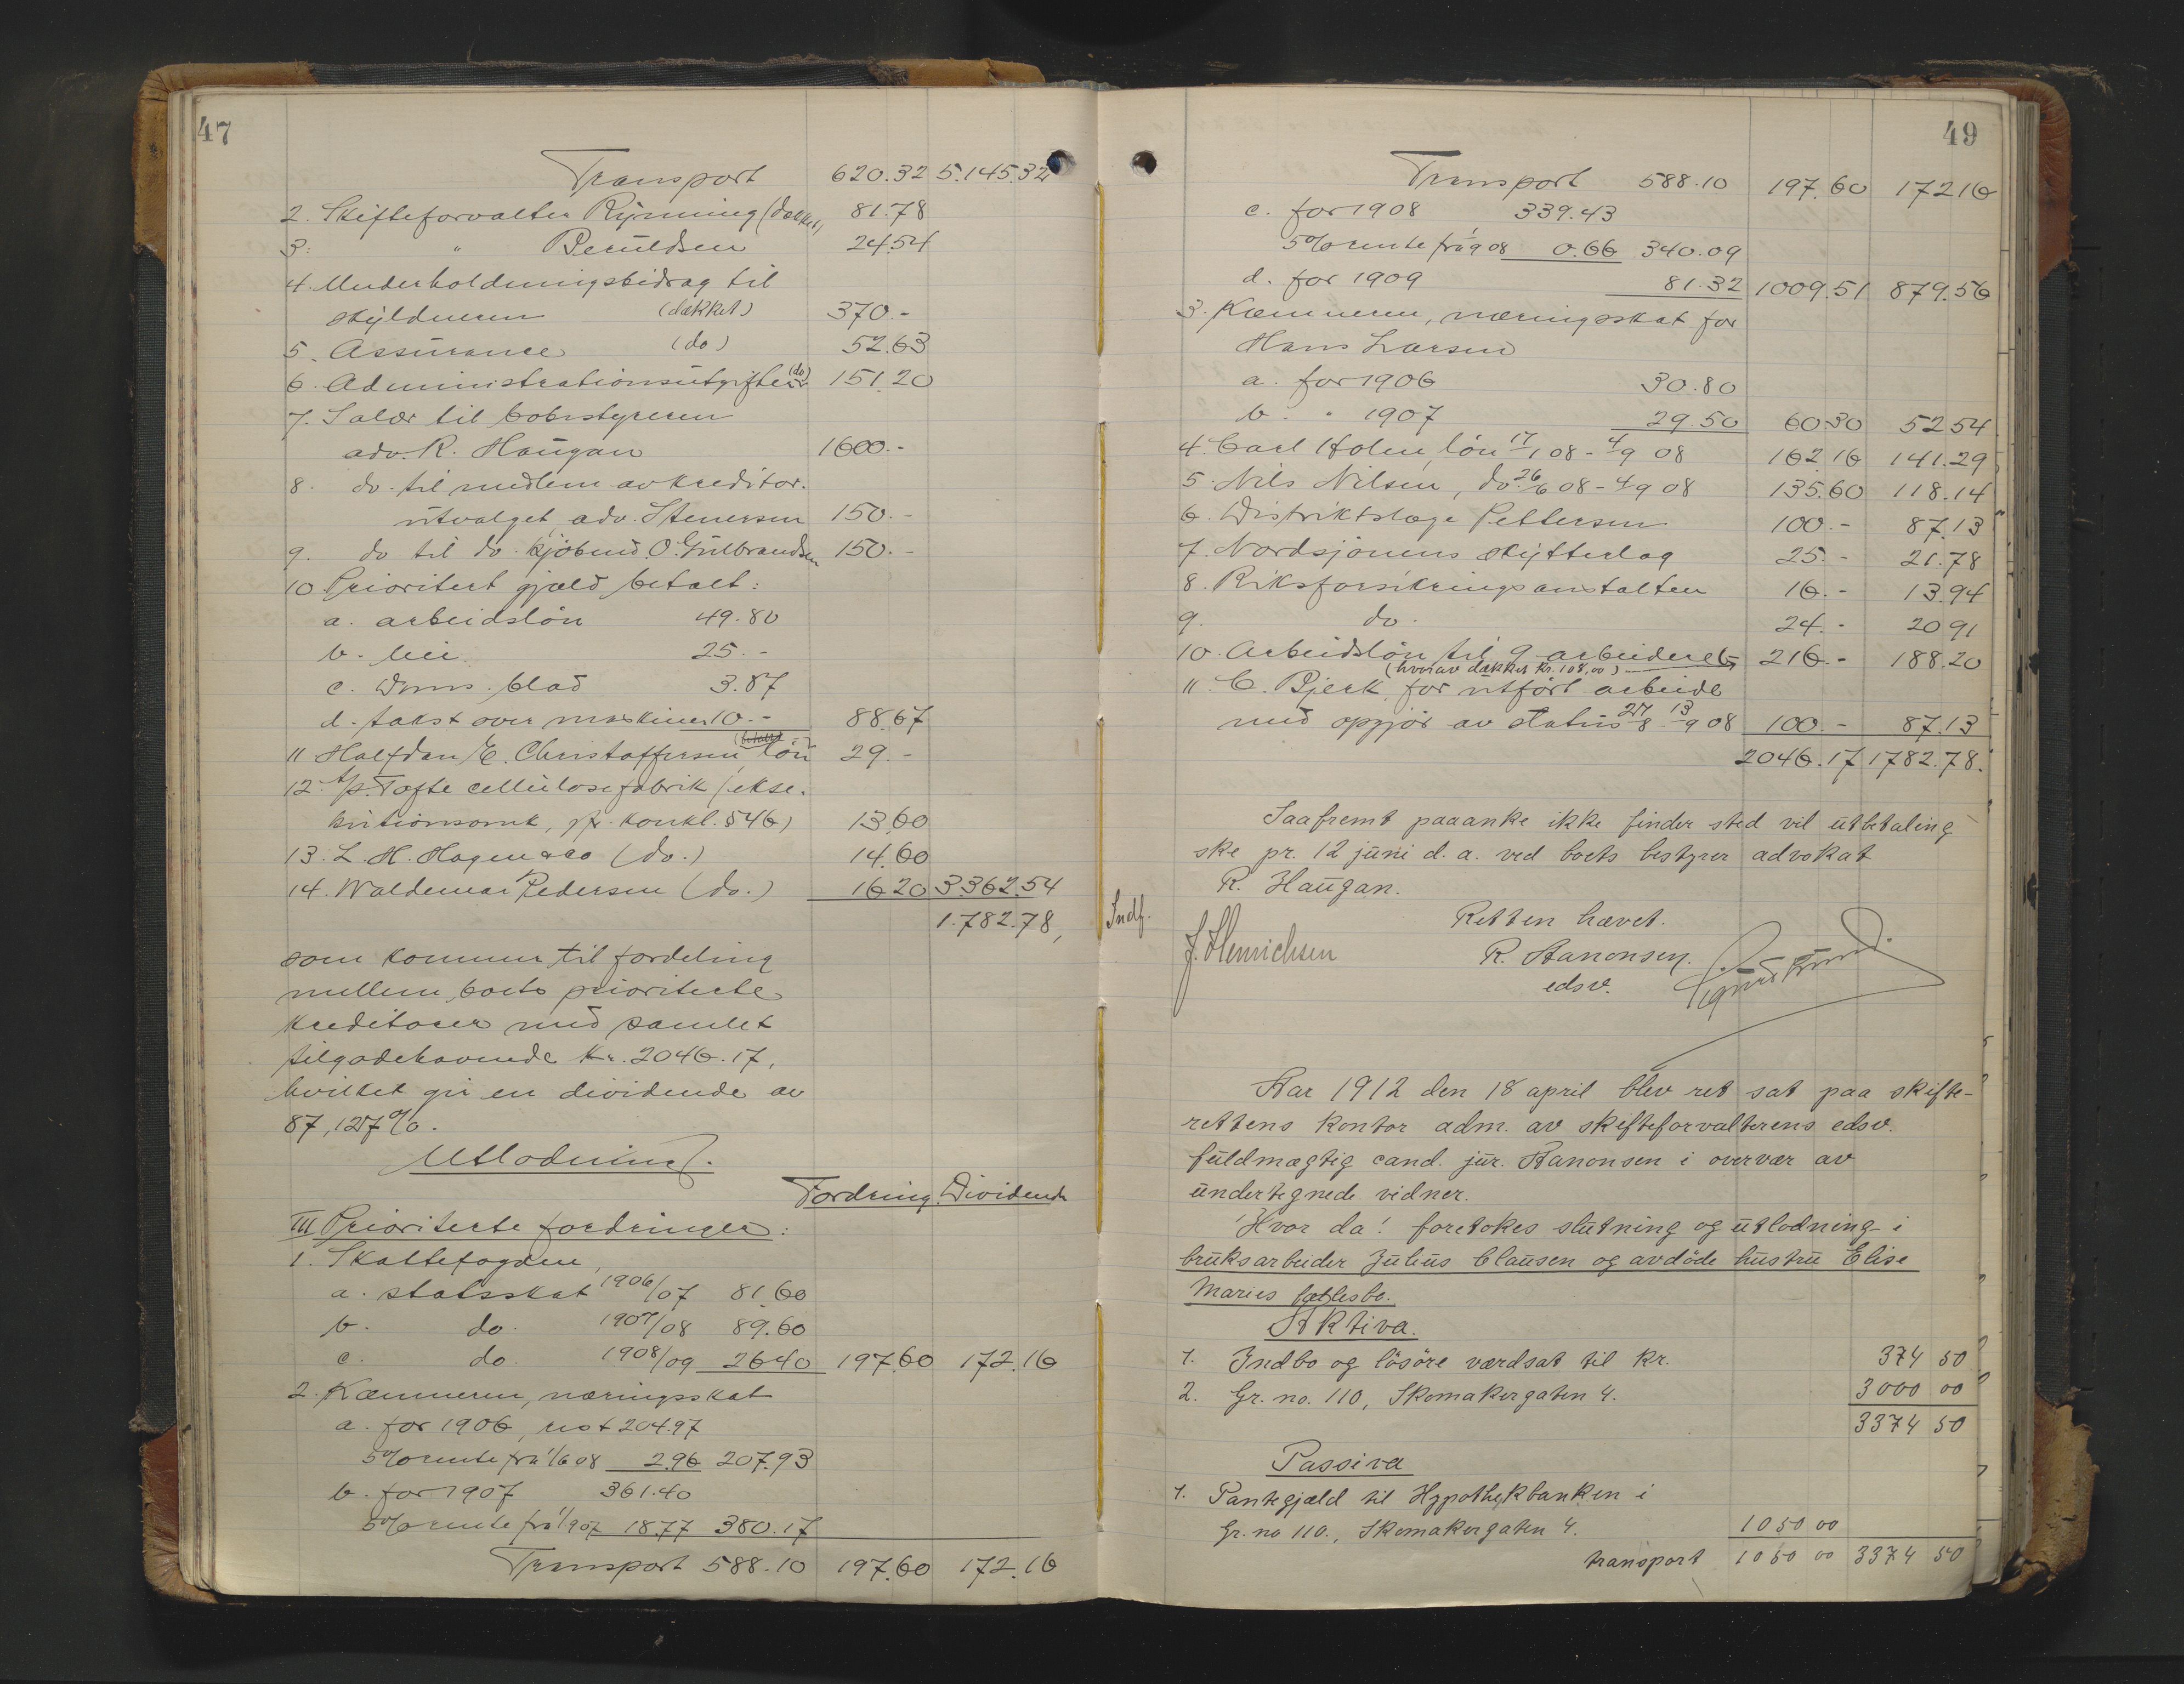 47
Transport 620.32 5.145.32
2. Skifteforvalter Rynning (dækket) 81.78
3. " Beruldsen 24.54
4. Underholdningsbidrag til
skyldneren (dækket) 370.-
5. Assurance (do) 52.63
6. Administrationsutgifter (do) 151.20
7. Salær til bobestyreren
adv. R. Haugan 1600.-
8. do. til medlem av kreditor-
utvalget, adv. Stenersen 150.-
9. do til do. kjøbmd. O. Gulbrandsen 150.-
10. Prioritert gjæld betalt:
a. arbeidslön 49.80
b. leie 25.-
c. Drms. blad 3.87
d. takst over maskiner 10.- 88.67
11 Halfdan E. Christoffersen, lön 29.-
12. A/s. Tofte cellulosefabrik (ekse-
kutionsomk, jfr. konkl. § 46) 13.60
13. L. H. Hagen & co (do.) 14.60
14. Waldemar Pedersen (do.) 16.20 3362.54
1.782.78,
som kommer til fordeling
mellem boets prioriterte
kreditorer med samlet
tilgodehavende kr. 2046.17,
hvilket gir en dividende av
87,127 %.
Utlodning.
Fordring. Dividende
III Prioriterte fordringer:
1. Skattefogden,
a. statsskat 1906/07 81.60
b. do. 1907/08 89.60
c. do. 1908/09 26.40 197.60 172.16
2. Kæmneren, næringsskat
a. for 1906, rest 204.97
5% rente fra 1/6 08 2.96 207.93
b. for 1907 361.40
5% rente fra 1/9 07 18.77 380.17
Transport 588.10 197.60 172.16
49
Transport 588.10 197.60 172.16
c. for 1908 339.43
5% rente fra 1/9 08 0.66 340.09
d. for 1909 81.32 1009.51 879.56
3. Kæmneren, næringsskat for
Hans Larsen
a. for 1906 30.80
b. " 1907 29.50 60.30 52.54
4. Carl Holm, lön 17/1 08 - 4/9 08 162.16 141.29
5. Nils Nilsen, do. 26/6 08 - 4/9 08 135.60 118.14
6. Distriktslæge Pettersen 100.- 87.13
7. Nordsjönens skytterlag 25.- 21.78
8. Riksforsikringsanstalten 16.- 13.94
9. do. 24.- 20.91
10. Arbeidslön til 9 arbeidere 216.- 188.20
(hvorav dækket kr. 108,00)
11. C. Bjerk, for utført arbeide
med opgjör av status 27/8 - 13/9 08 100.- 87.13
2046.17 1782.78.
Saafremt paaanke ikke finder sted vil utbetaling
ske pr. 12 juni d. a. ved boets bestyrer advokat
R. Haugan.
Indf.
Retten hævet.
J. Henrichsen R. Aanonsen.
edsv.
Aar 1912 den 18 april blev ret sat paa skifte-
rettens kontor adm. av skifteforvalterens edsv.
fuldmægtig cand. jur. Aanonsen i overvær av
undertegnede vidner.
Hvor da: foretokes slutning og utlodning i
bruksarbeider Julius Clausen og avdöde hustru Elise
Maries fællesbo.
Aktiva.
1. Indbo og lösöre værdsat til kr. 374 50
2. Gr. no. 110, Skomakergaten 4. 3000 00
3374 50
Passiva
1. Pantegjæld til Hypothekbanken i
Gr. no 110., Skomakergaten 4. 1050 00
transport 1050 00 3374 50